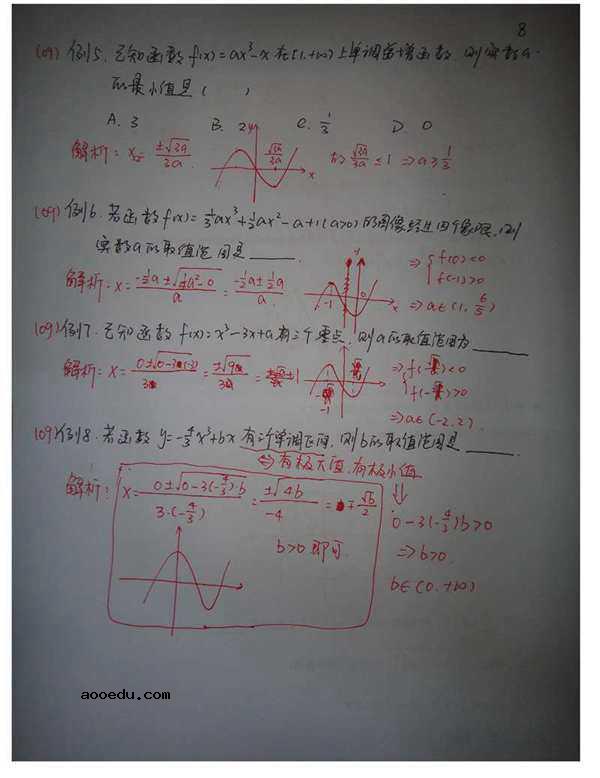 8
(09) 例5. 已知函数 f(x)=ax³-x 在[1,+∞)上单调递增函数,则实数a
的最小值是( )
A. 3 B. 2 C. 1/3 D. 0
解析: x= ±√3a/3a y √3a/3a x 故 √3a/3a ≤1 ⇒a≥1/3
(09) 例6. 若函数 f(x)=1/3ax³+1/2ax²-a+1(a>0)的图像经过四个象限,则
实数a的取值范围是____.
解析: x= (-1/2a±√(1/4a²-0))/a = (-1/2a±1/2a)/a -1 0 x ⇒{f(0)<0 f(-1)>0
⇒a∈(1, 6/5)
(09) 例7. 已知函数 f(x)=x³-3x+a有三个零点,则a的取值范围为____
解析: x= (0±√(0-3(-3)))/3 = ±√9/3 = ±1 -1 ⇒{f(1)<0 f(-1)>0
⇒a∈(-2,2)
(09) 例8. 若函数 y=-4/3x³+bx 有三个单调区间,则b的取值范围是____.
⇔有极大值,有极小值
解析: x= (0±√(0-3(-4/3)·b))/(3·(-4/3)) = ±√4b/-4 = ∓√b/2
⇓
0-3(-4/3)b>0
b>0即可.
⇒b>0.
b∈(0,+∞)
aooedu.com